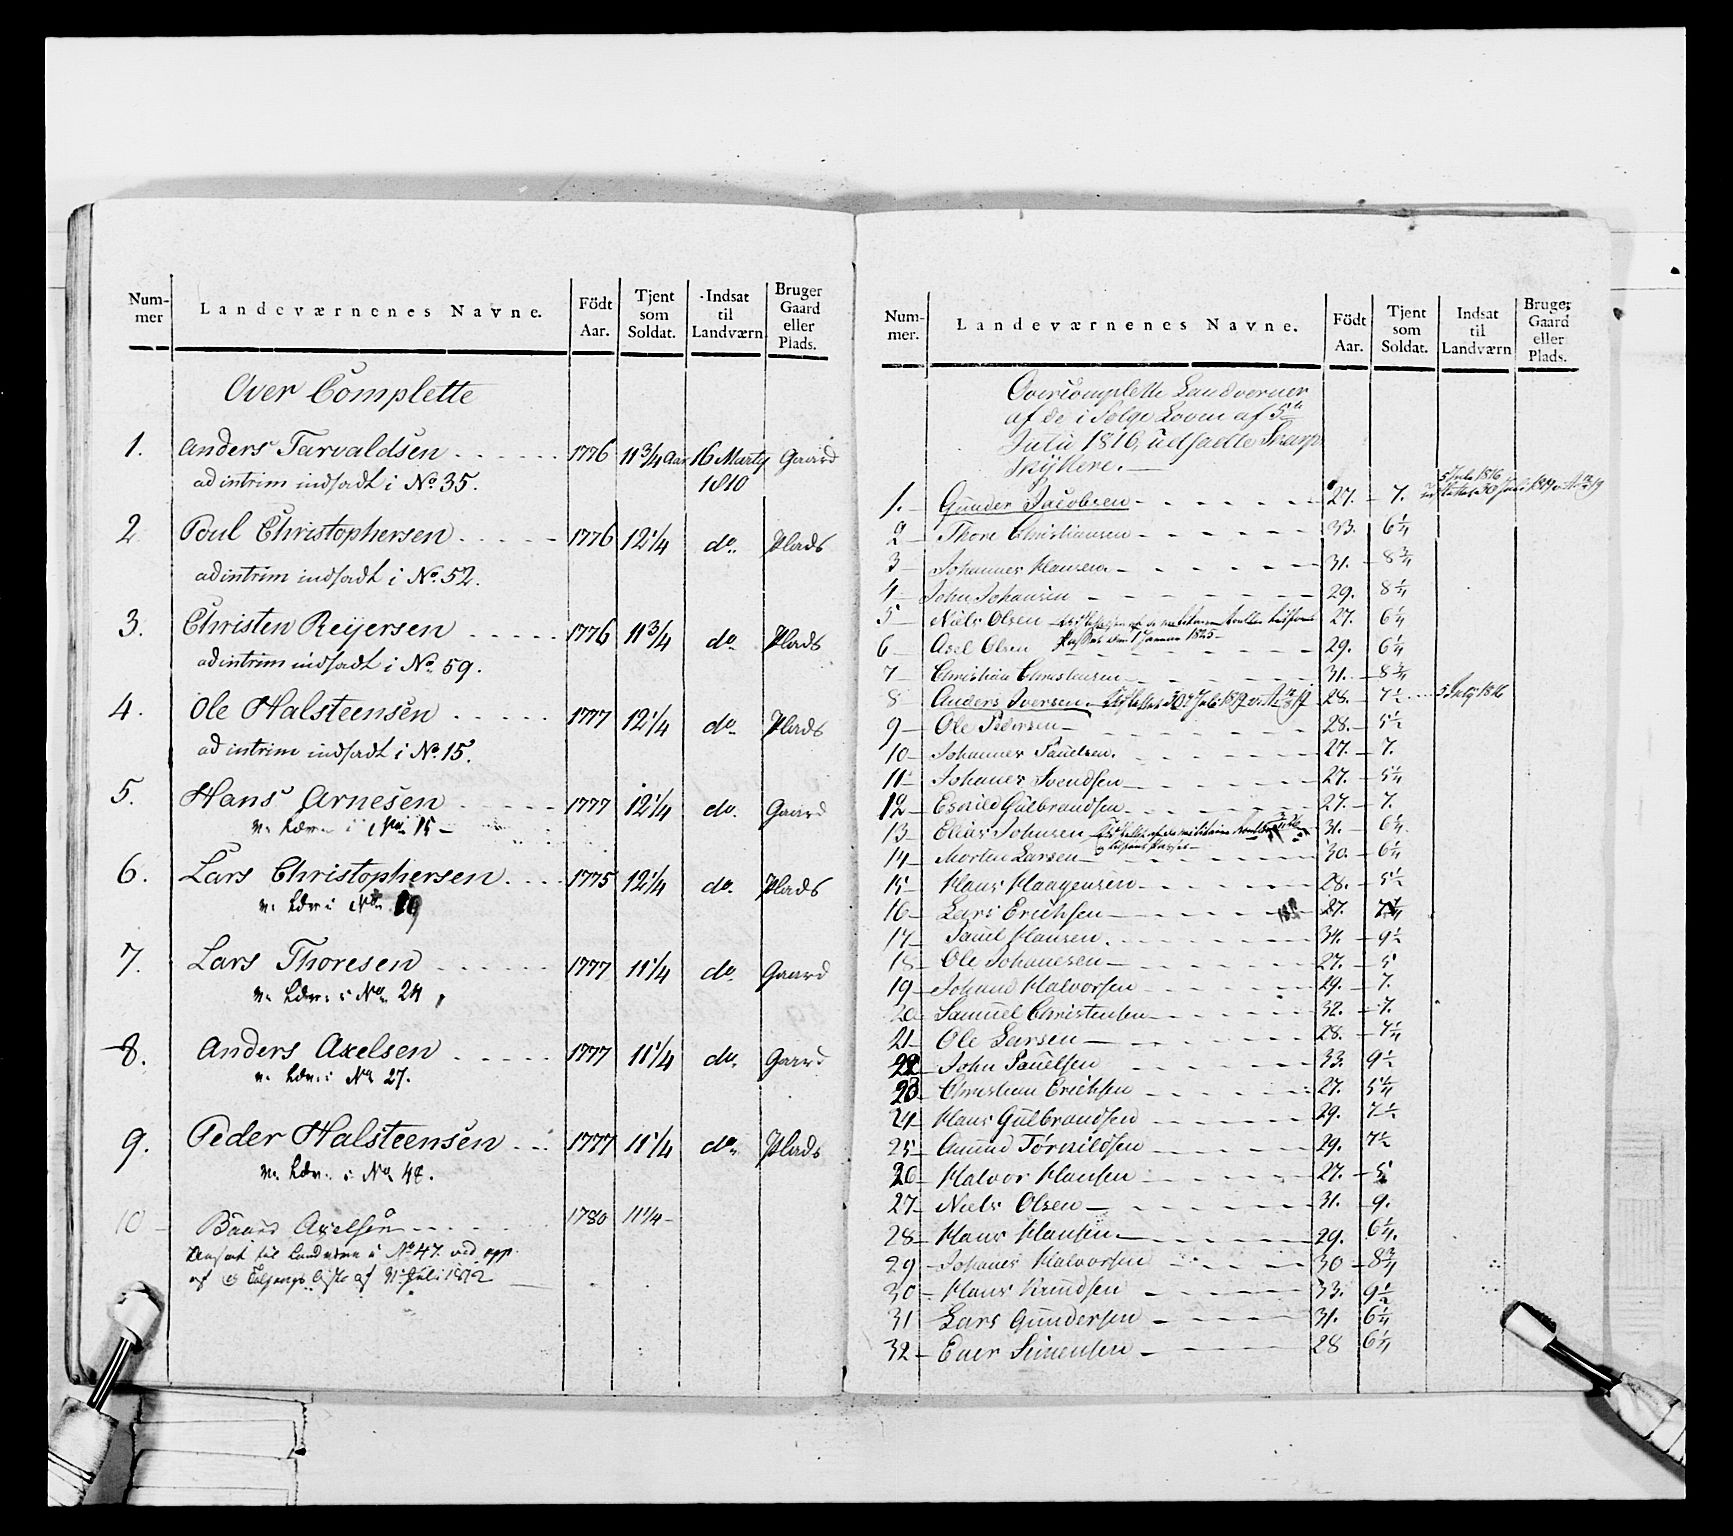 Num-mer Landeværnenes Navne. Födt Aar. Tjent som Soldat. Indsat til Landværn Bruger Gaard eller Plads.
Over Complette
1. Anders Tarvaldsen 1776 11 3/4 Aar 16 Marty 1810 Gaard
ad intrim indsadt i No. 35.
2 Poul Christophersen 1776 12 1/4 do. Plads
ad intrim indsadt i No. 52.
3. Christen Reijersen 1776 11 3/4 do Plads
ad intrim indsadt i No. 59.
4. Ole Halsteensen 1777 12 1/4 do. Plads
ad intrim indsadt i No. 15.
5. Hans Arnesen 1777 12 1/4 do. Gaard
No. 15
6. Lars Christophersen 1775 12 1/4 do. Plads
i No.
7. Lars Thoresen 1777 11 1/4 do Gaard
i No. 24
8. Anders Axelsen 1777 11 1/4 do. Gaard
i No. 27.
9. Peder Halsteensen 1777 11 1/4 do. Plads
i No. 48.
10 Baard Axelsen 1780 11 1/4
til Landværn i No. 47. ved opp.
af Juli 1812
Num-mer. Landeværnenes Navne. Födt Aar. Tjent som Soldat. Indsat til Landværn Bruger Gaard eller Plads.
Overcomplette Landverner
af de i Følge Loven af 5te
Julii 1816, udsatte Skarp
skyttere.
1. Gunder Jacobsen 27. 7. 5 Julu 1816
2 Thore Christiansen 33. 6 1/4
3 Johannes Hansen 31. 8 3/4
4 John Johansen 29. 8 1/4
5 Niels Olsen 27. 6 1/4
6 Axel Olsen 1 Januar 1825 29. 6 1/4
7 Christian Christensen 31. 8 3/4
8 Anders Iversen 28. 7 1/2 5 July 1816
9 Ole Pedersen 28. 5 1/2
10 Johannes Paulsen. 27. 7.
11 Johannes Svendsen 27. 5 1/4
12 Gulbrandsen 27. 7.
13 Elias Johnsen 31. 6 1/4
14 Morten Larsen 30. 6 1/4
15 Hans Haagensen 28. 5 1/2
16 Lars Erichsen 27.
17 Paul Hansen. 34. 9 1/2
18 Ole Johannesen 27. 5
19 Johan Halvorsen 29. 7.
20 Samuel Christensen 32. 7.
21 Ole Larsen 28. 7 1/4
22 John Paulsen 33. 9 1/2
23 Christian Erichsen 27. 5 1/4
24 Hans Gulbrandsen 29. 7 1/2
25 Amund Törnildsen 29. 7 1/2
26 Halvor Hansen 27. 5
27 Niels Olsen 31. 9.
28 Hans Hansen 29. 6 1/4.
29 Johannes Halvorsen 30 8 3/4
30 Hans Knudsen 33. 9 1/2
31 Lars Gundersen 31. 6 1/4
32 Ener Simensen 28 6 1/4